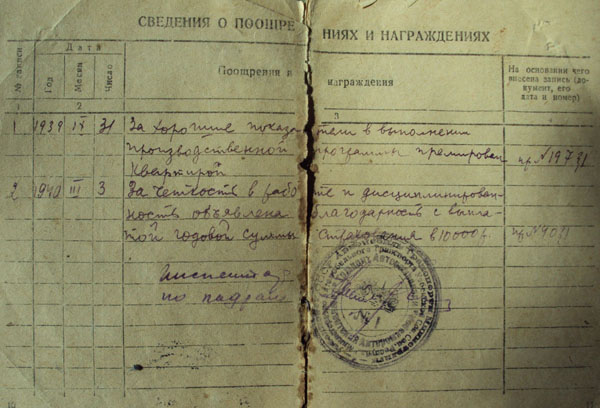 СВЕДЕНИЯ О ПООЩРЕНИЯХ И НАГРАЖДЕНИЯХ
№ записи
Дата
Год
Месяц
Число
Поощрении и награждения
На основании чего
внесена запись (до-
кумент, его
дата и номер)
1
2
3
1 1939 IX 31 За хорошие показатели в выполнении
производственной программы премирован
Квартирой
2 1940 III 3 За четкость в работе и дисциплинирован-
ность объявлена благодарность с выпла-
той годовой суммы страхования в 10000 р.
Инспектор
по кадрам